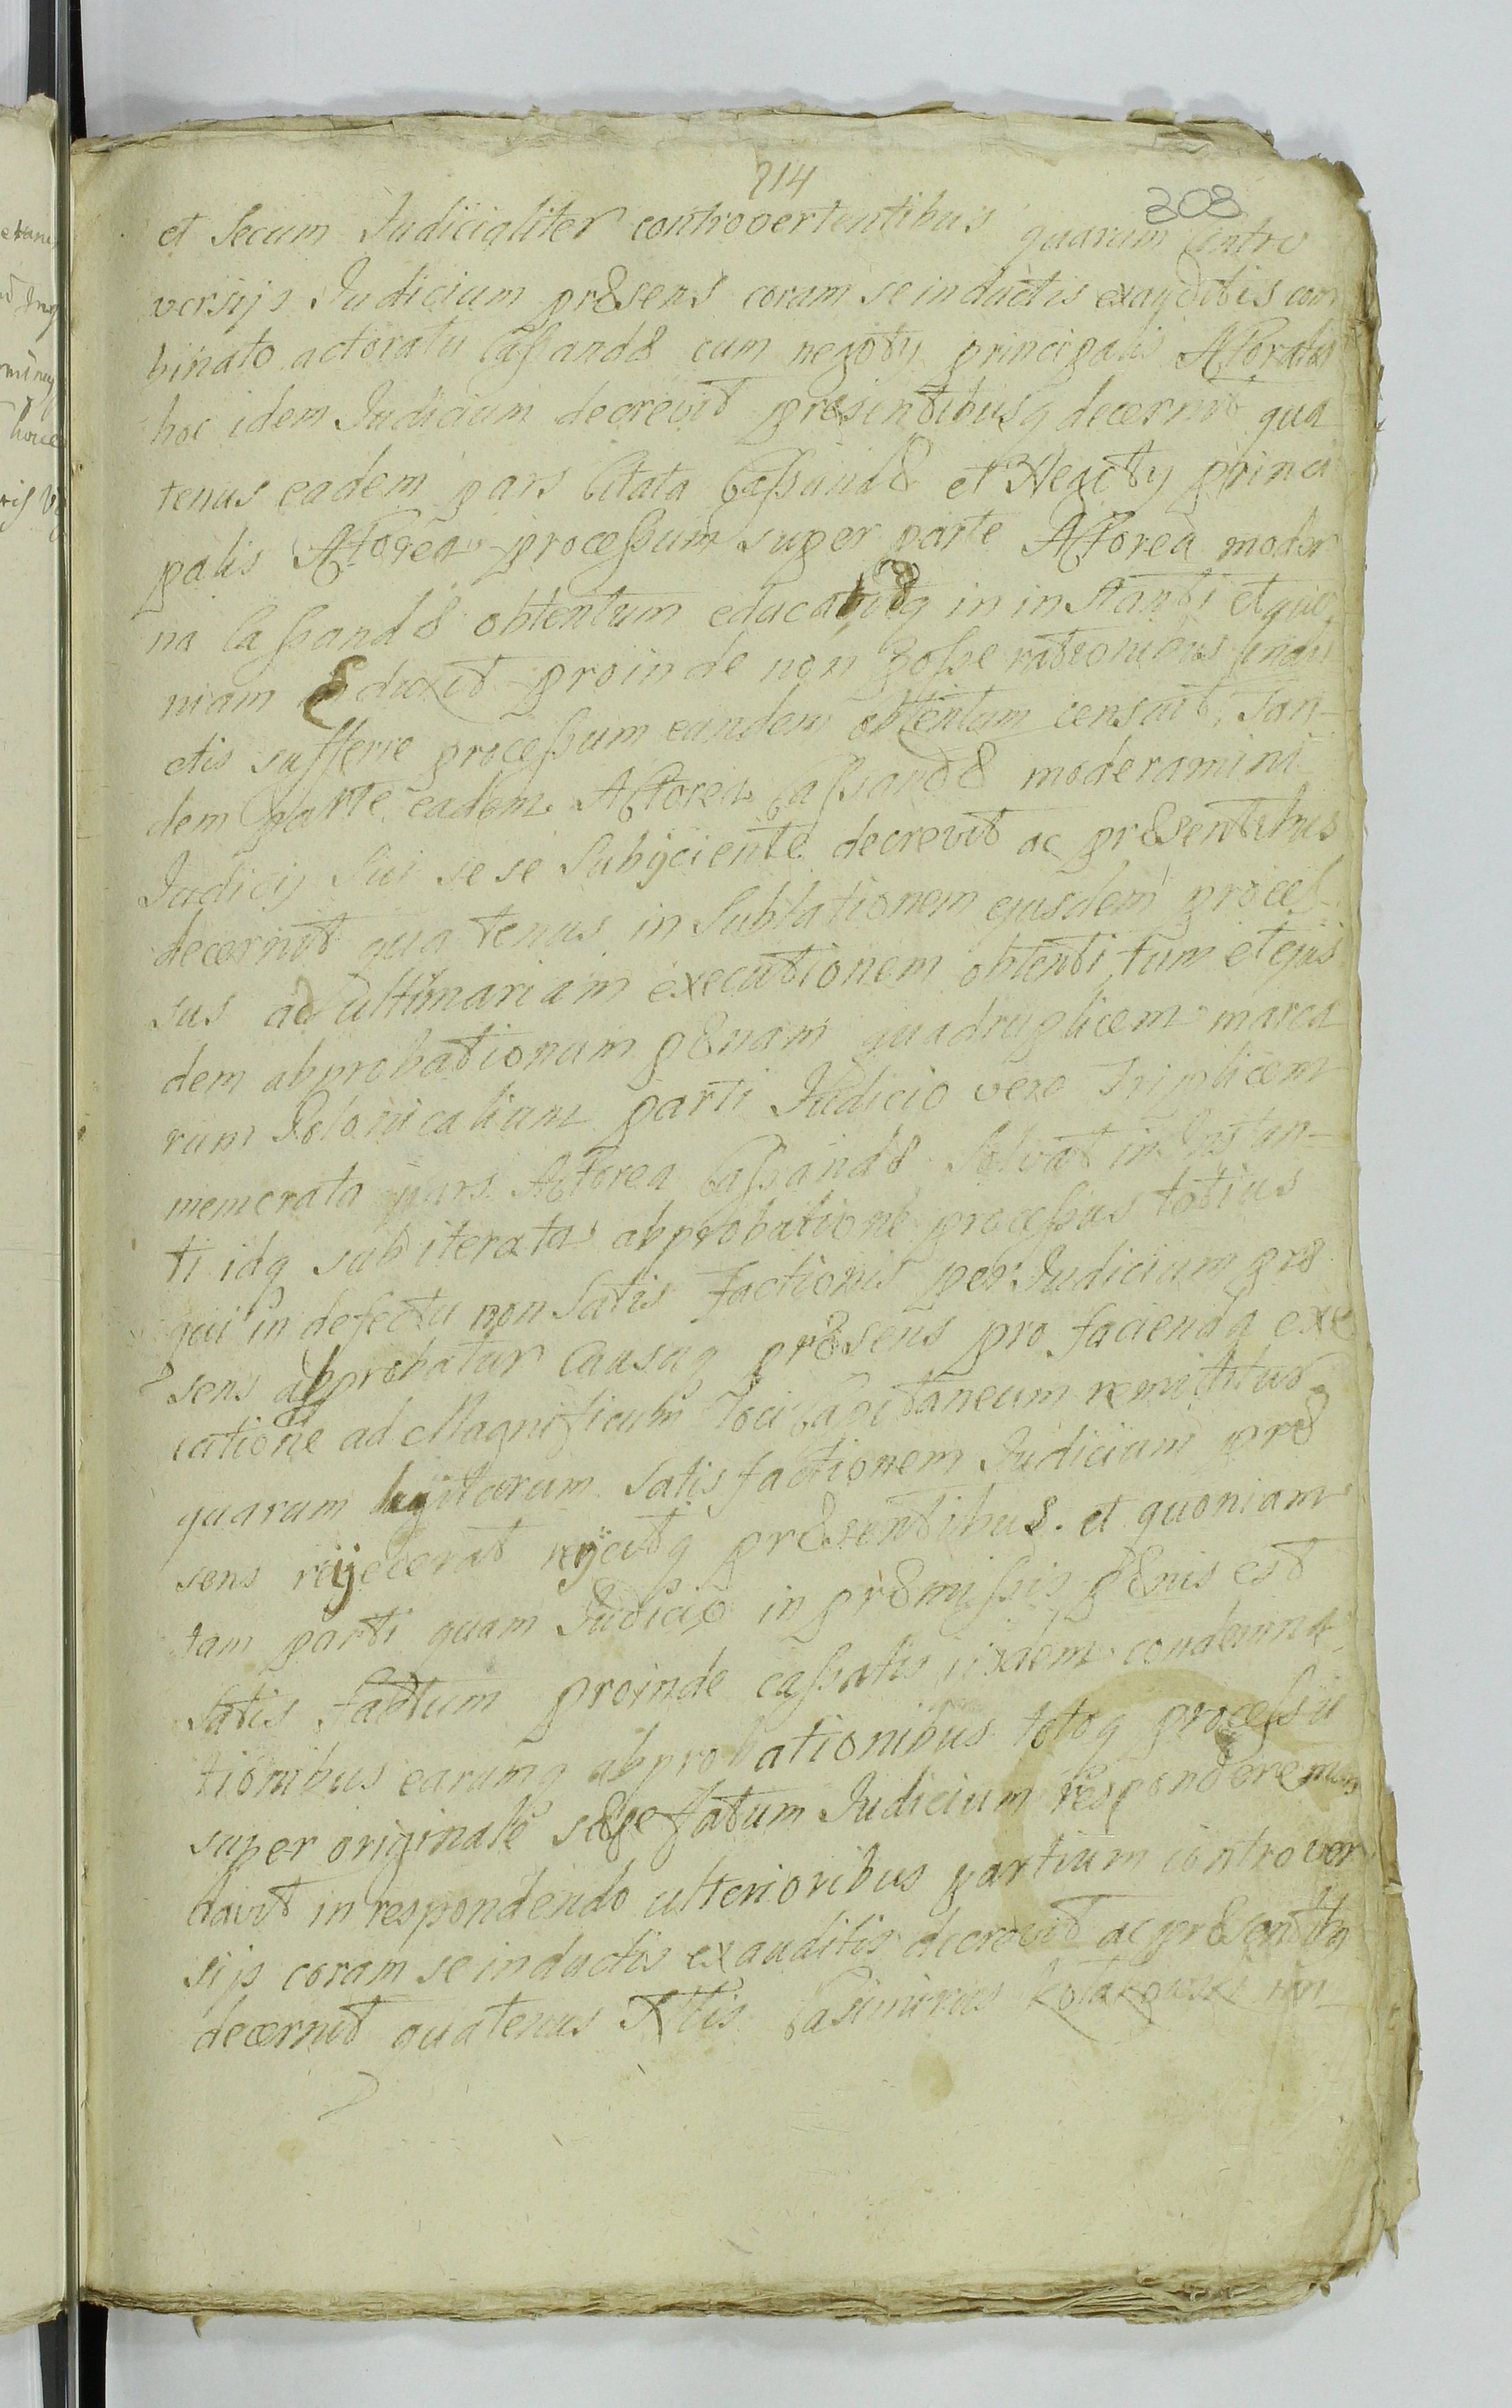 714
308
et Secum Judicialiter controvertentibus quarum Contro
versijs Judicium præsens coram se inductis exauditis com
binato actoratu Cassandæ cum negoty principalis Actoratu
hoc idem Judicium decrevit præsentibusq decernit qua
tenus eadem pars Citata Cassandæ et Negoty princi
palis Actorea processum super parte Actorea moder
na Cassandæ obtentum educat in instanti et quo
niam Eduxit proinde non posse rationibus indu
ctis sufferre processum eundem obtentum censuit, Tan-
dem parte eadem Actorea Cassandæ moderamini
Judicij Sui se se Subijciente decrevit ac præsentibus
decernit quatenus in Sublationem ejusdem proces-
sus ad ultimariam executionem obtenti tum et ejus
dem approbationum pænam quadruplicem marca
rum Polonicalium parti Judicio vero Triplicem
memorata pars Actorea Cassandæ Solvat in Instan-
ti idq sub iterata approbatione processus totius
qui in defectu non Satis factionis per Judicium præ
sens approbatur Causaq præsens pro facienda exe
cutione ad Magnificum loci Capitaneum remittitur
quarum luitarum Satisfactionem Judicium præ
sens reijecerat reijcitq præsentibus. et quoniam
tam parti quam Judicio in præmissis pænis est
Satis factum proinde cassatis ijsdem condemna
tionibus earumq approbationibus totoq processu
super originale sæpefatum Judicium respondere man
davit in respondendo ulterioribus partium controver
sijs coram se inductis exauditis decrevit ac præsentibq
decernit quatenus Ittis Casimirus